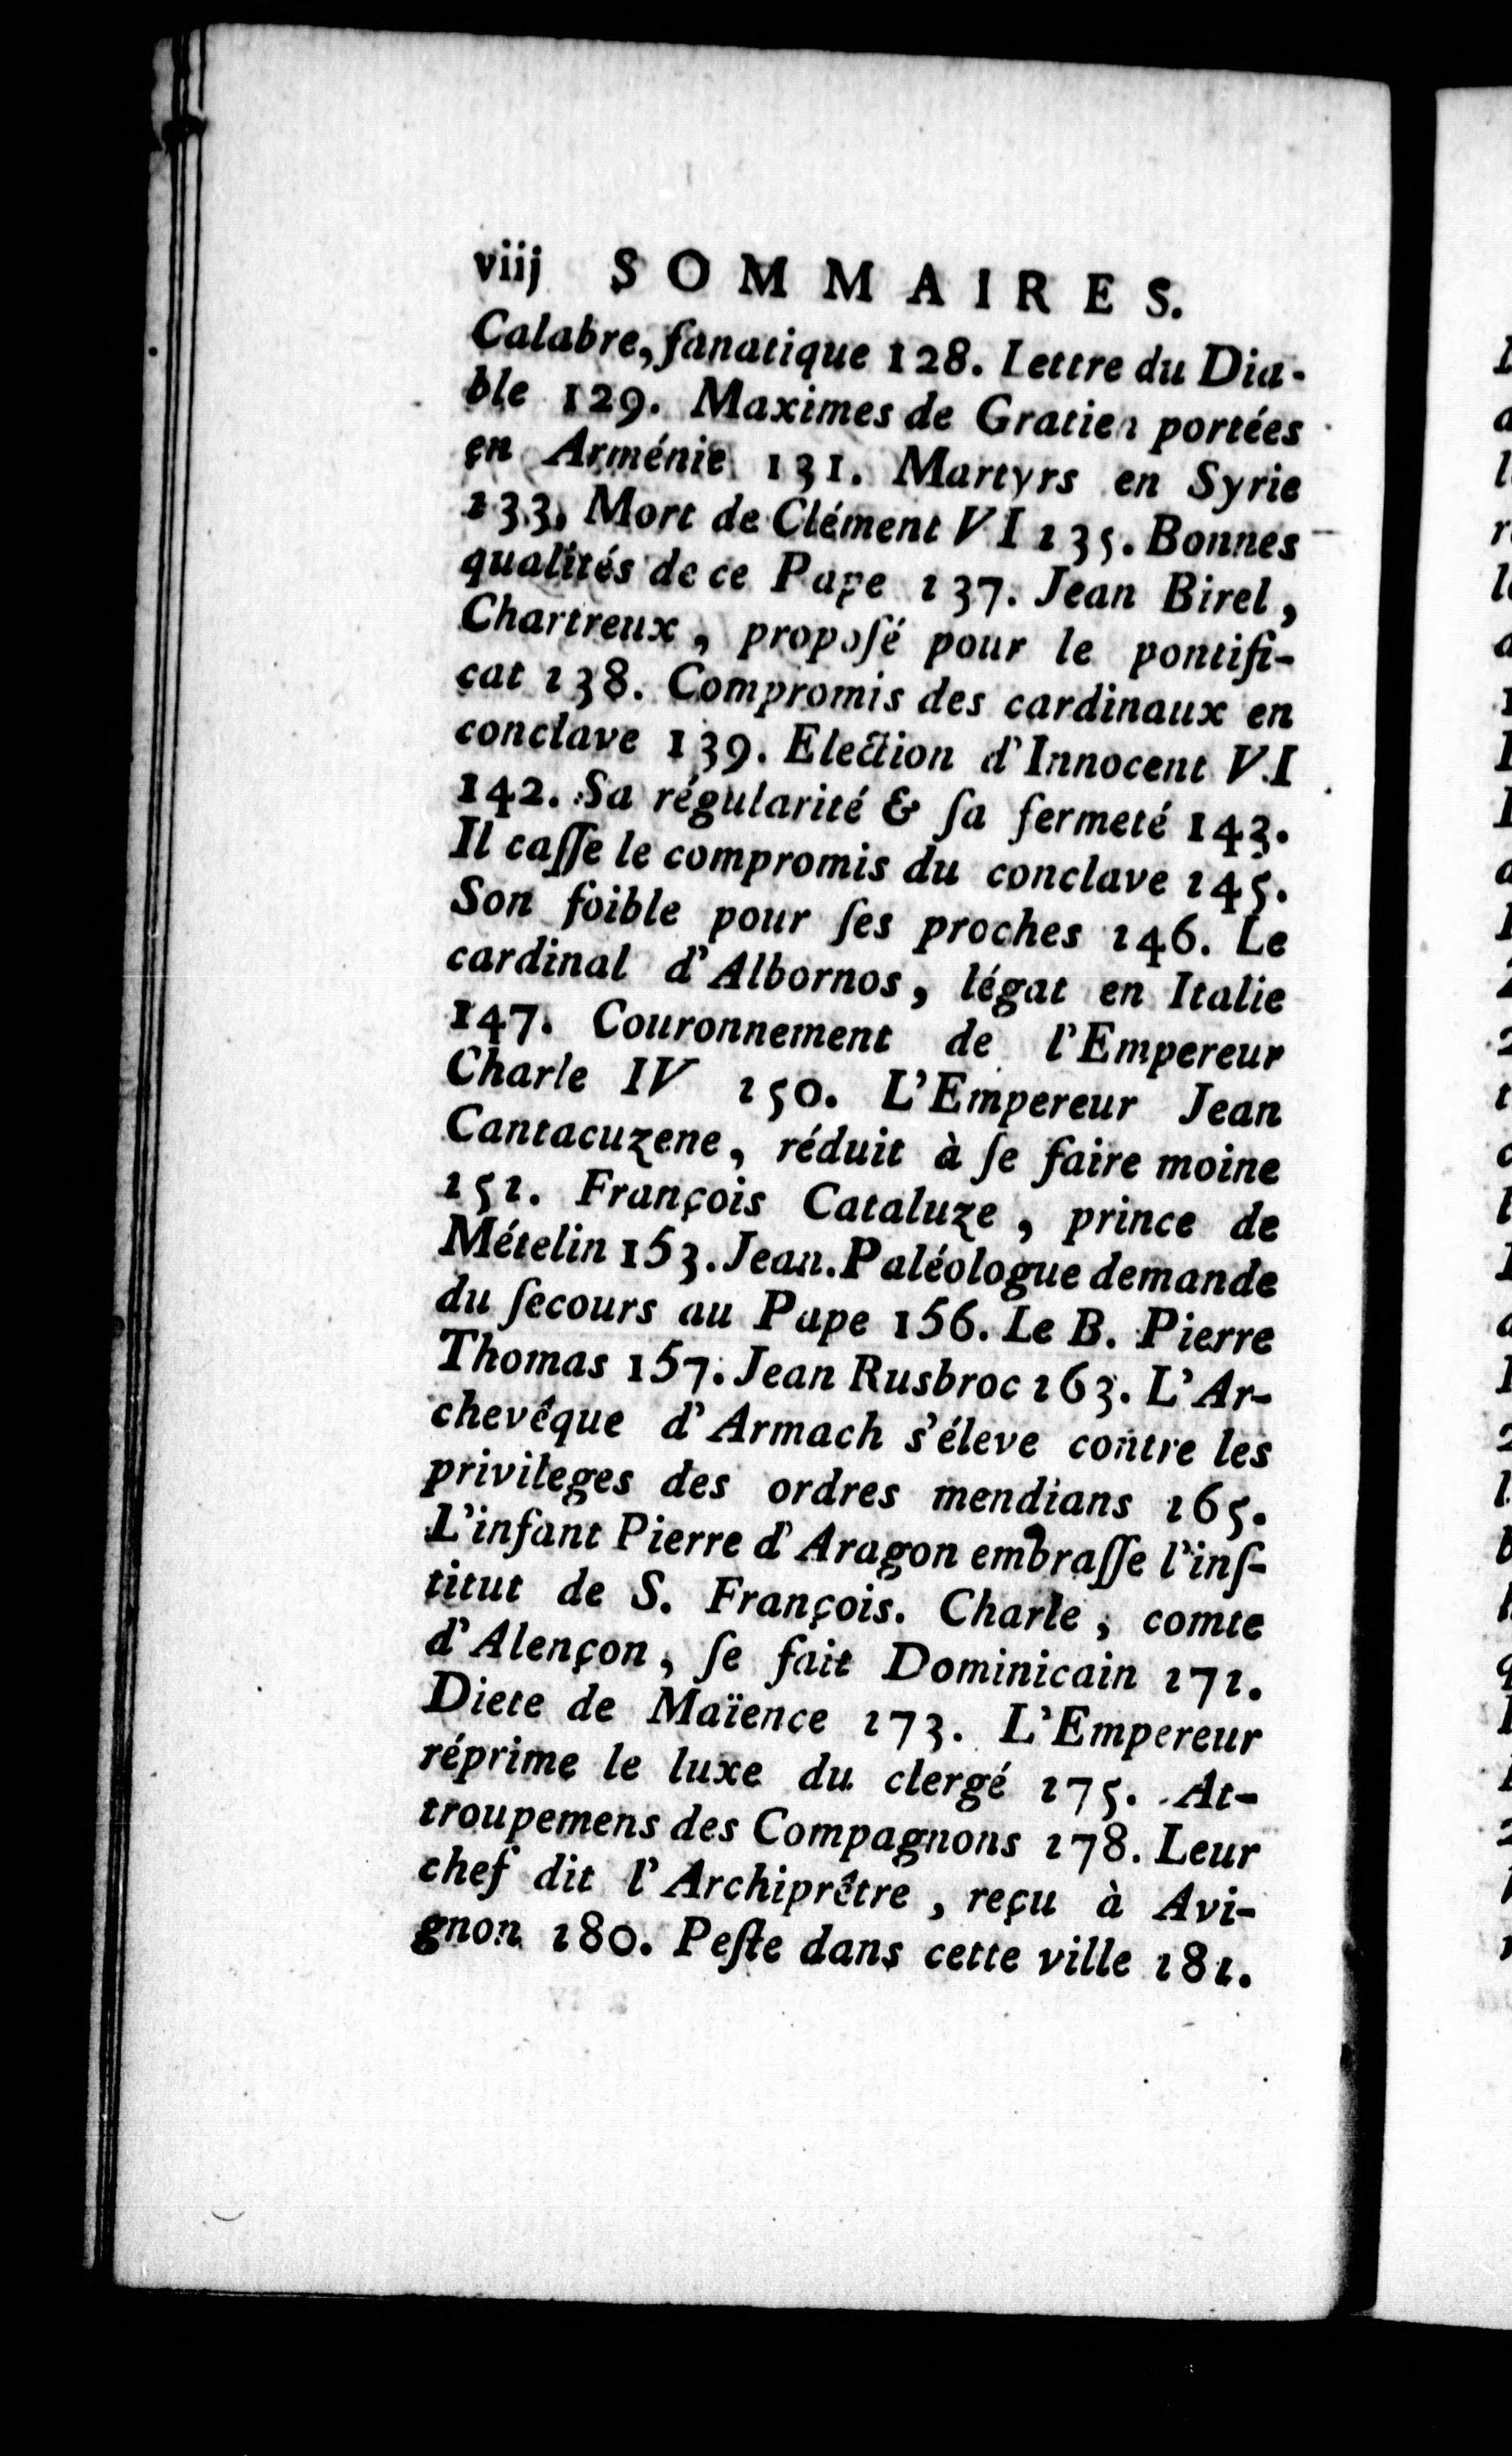 viij SOMMAIRES.
Calabre, fanatique 128. Lettre du Dia-
ble 129. Maximes de Gratien portées
en Arménie 131. Martyrs en Syrie
133. Mort de Clément VI 135. Bonnes
qualités de ce Pape 137. Jean Birel,
Chartreux, propoſé pour le pontifi-
cat 138. Compromis des cardinaux en
conclave 139. Election d'Innocent VI
142. Sa régularité & ſa fermeté 143.
Il caſſe le compromis du conclave 145.
Son foible pour ſes proches 146. Le
cardinal d'Albornos, légat en Italie
147. Couronnement de l'Empereur
Charle IV 150. L'Empereur Jean
Cantacuzene, réduit à ſe faire moine
151. François Cataluze, prince de
Mételin 153. Jean Paléologue demande
du ſecours au Pape 156. Le B. Pierre
Thomas 157. Jean Rusbroc 163. L'Ar-
chevêque d'Armach s'éleve contre les
privileges des ordres mendians 165.
L'infant Pierre d'Aragon embraſſe l'inſ-
titut de S. François. Charle, comte
d'Alençon, ſe fait Dominicain 171.
Diete de Maïence 173. L'Empereur
réprime le luxe du clergé 175. At-
troupemens des Compagnons 178. Leur
chef dit l'Archiprêtre, reçu à Avi-
gnon 180. Peſte dans cette ville 181.